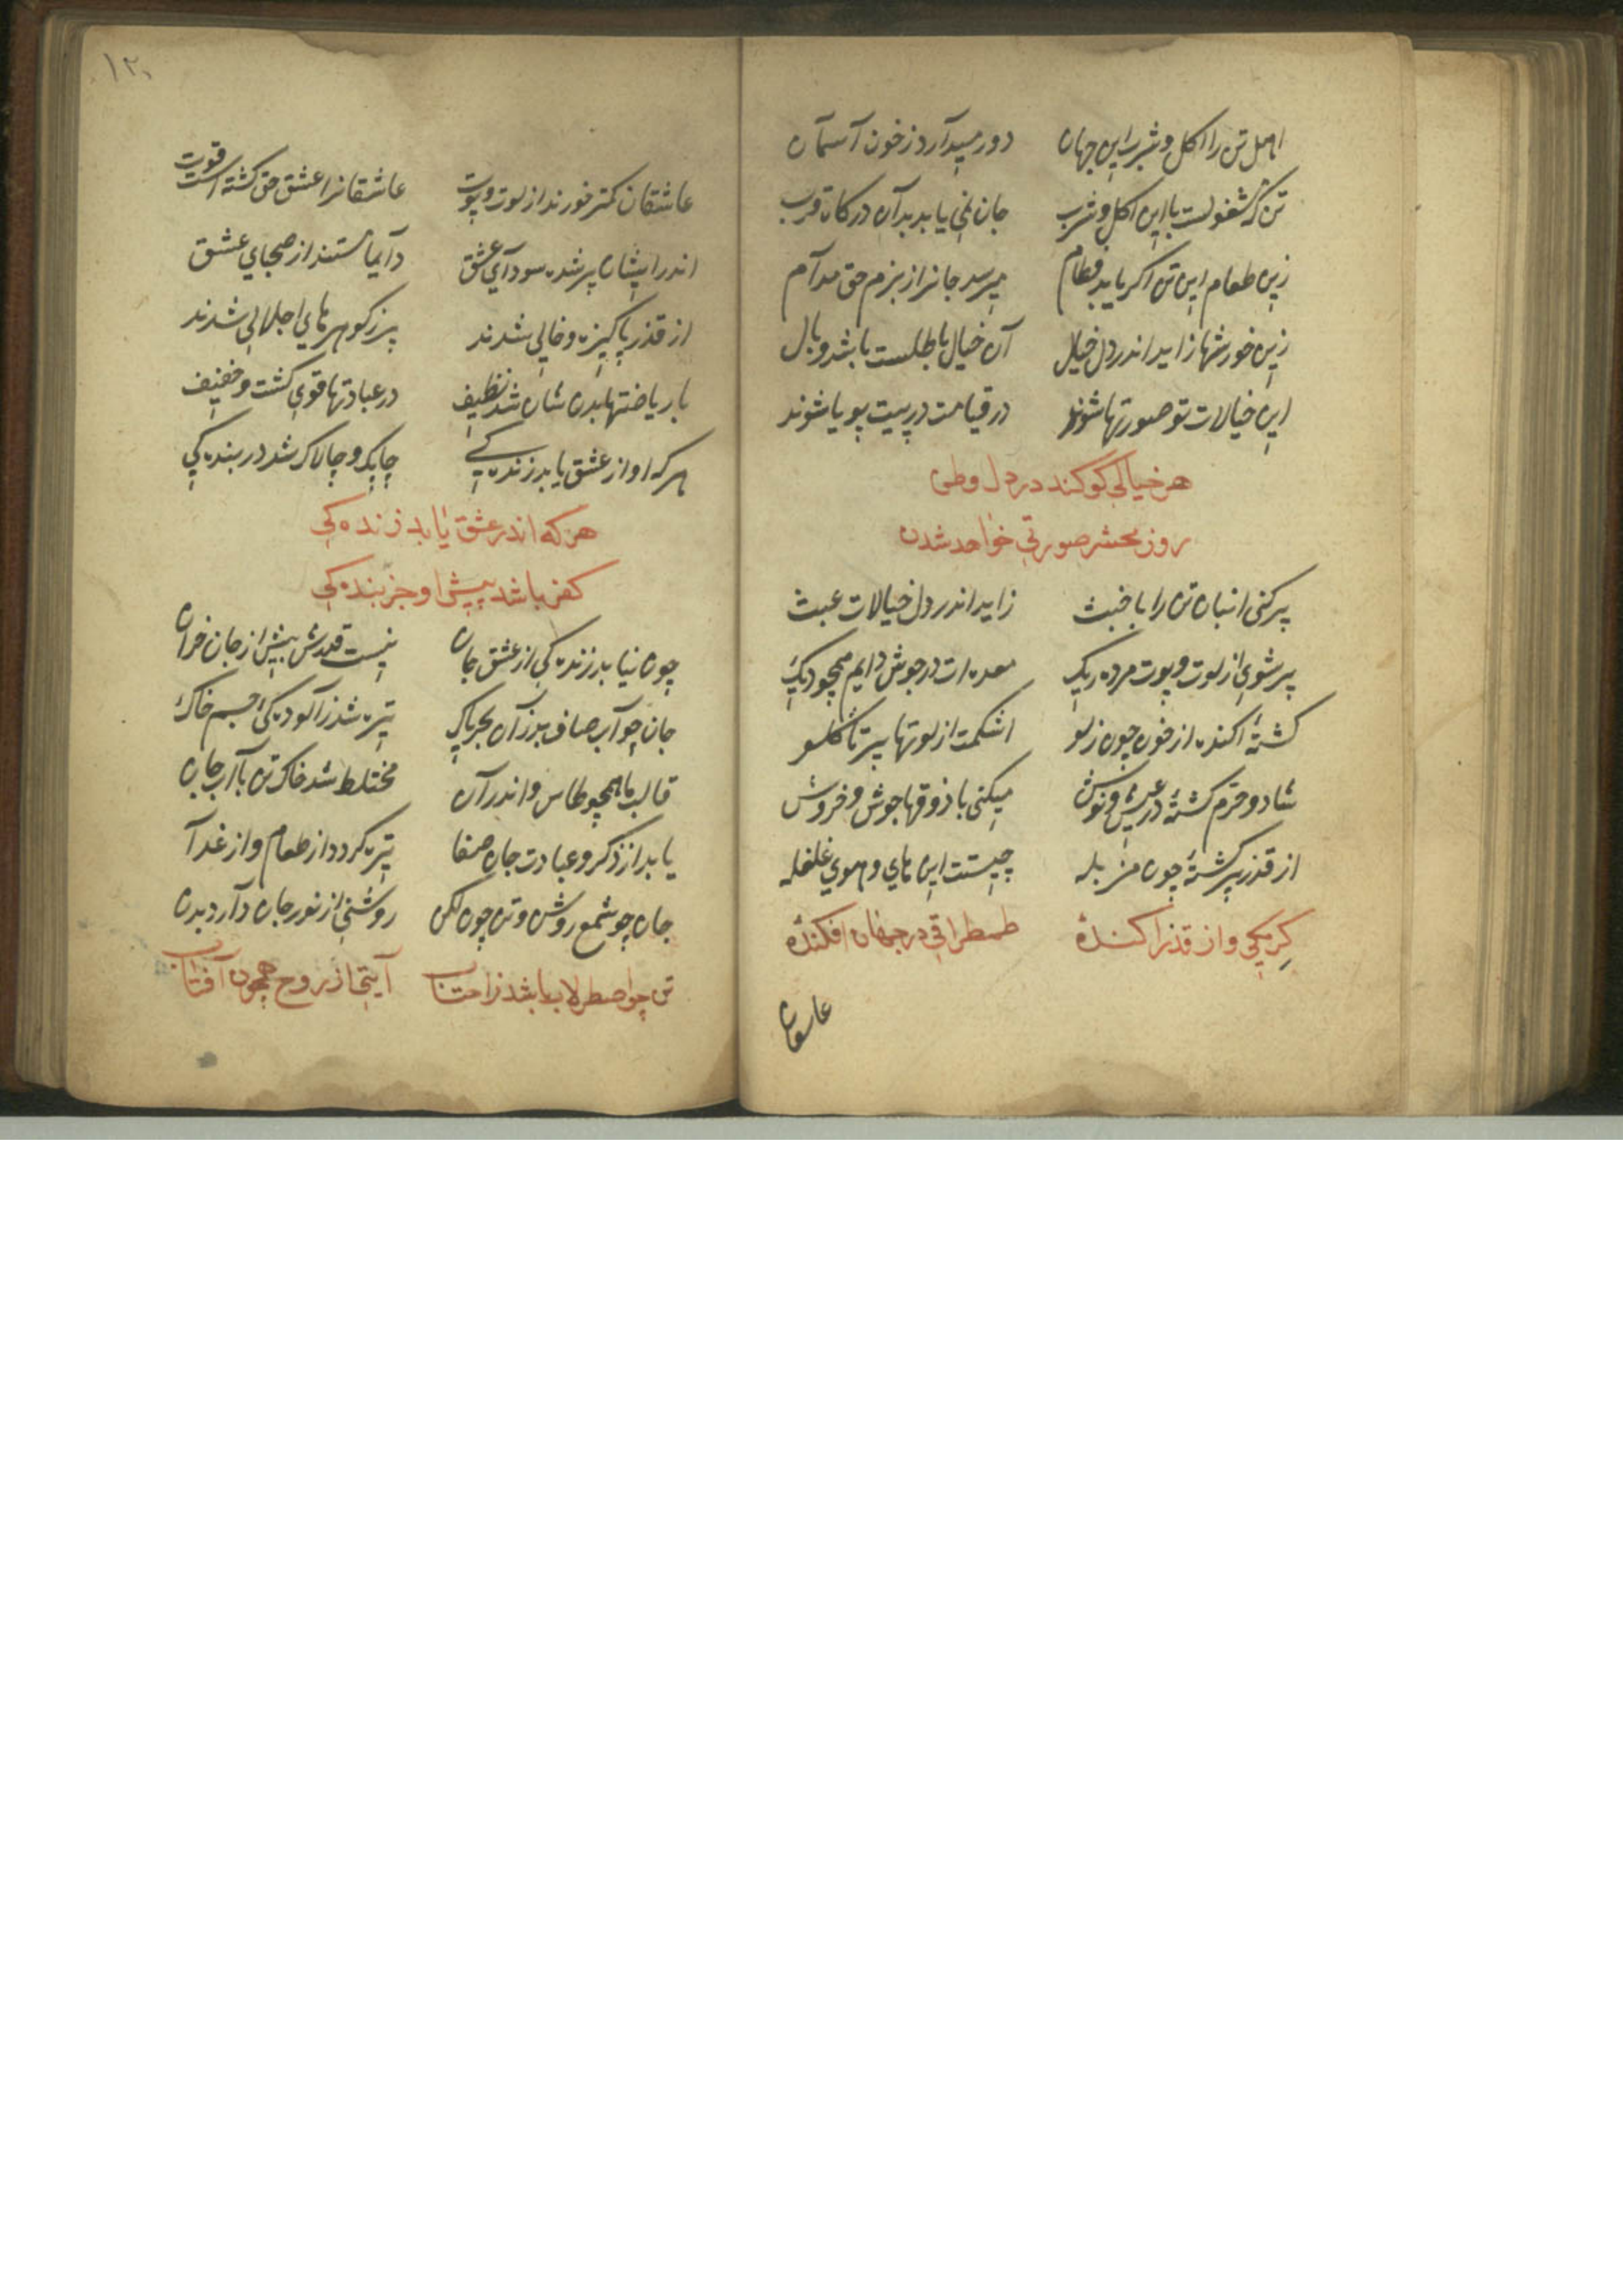 اهل تن را اکل و شرب این جهان دور میدارد ز خون آسمان
تن که مشغولست با این اکل و شرب جان نمی یابد بدان درکاه قرب
زین طعام این تن اکر یابد فطام میرسد جانرا ز بزم حق مدام
زین خورشها زاید اندر دل خیال آن خیال باطلست باشد وبال
این خیالات تو صورتها شوند در قیامت در پیت پویا شوند
هر خیالی کو کند در دل وطن
روز محشر صورتی خواهد شدن
پر کنی انبان تن را با خبث زاید اندر دل خیالات عبث
پر شوی از لوت و پوت مرده ریک معده ات در جوش دایم همچو دیک
کشتهٔ اکنده از خون چون زلو اشکمت از لوتها پر تا کلو
شاد و خرم کشتهٔ در عیش و نوش میکنی با ذوقها جوش و خروش
از قذر پر کشتهٔ چون مزبله چیست این های و هوی غلغله
کرمکی و از قذر اکندهٔ طمطراقی در جهان افکندهٔ
عاشقان
۱۲۰
عاشقان کمتر خورند از لوت و پوت عاشقانرا عشق حق کشته است قوت
اندر ایشان پر شده سودای عشق دایما مستند از صهبای عشق
از قذر پاکیزه و خالی شدند پر ز کوهرهای اجلالی شدند
با ریاضتها بدن شان شد نظیف در عبادتها قوی کشت و خفیف
هر که او از عشق یابد زنده کی چابک و چالاک شد در بنده کی
هر که اندر عشق یابد زنده کی
کفر باشد پیش او جز بنده کی
چون نیابد زنده کی از عشق جان نیست قدرش بیش از جان خران
جان چو آب صاف بد زان بحر پاک تیره شد ز آلوده کئ جسم خاک
قالب ما همچو طاس و اندر آن مختلط شد خاک تن با آب جان
یابد از ذکر و عبادت جان صفا تیره کردد از طعام و از غدا
جان چو شمع روشن و تن چون لکن روشنی از نور جان دارد بدن
تن چو اصطرلاب باشد ز احتساب آیتی از روح همچون آفتاب